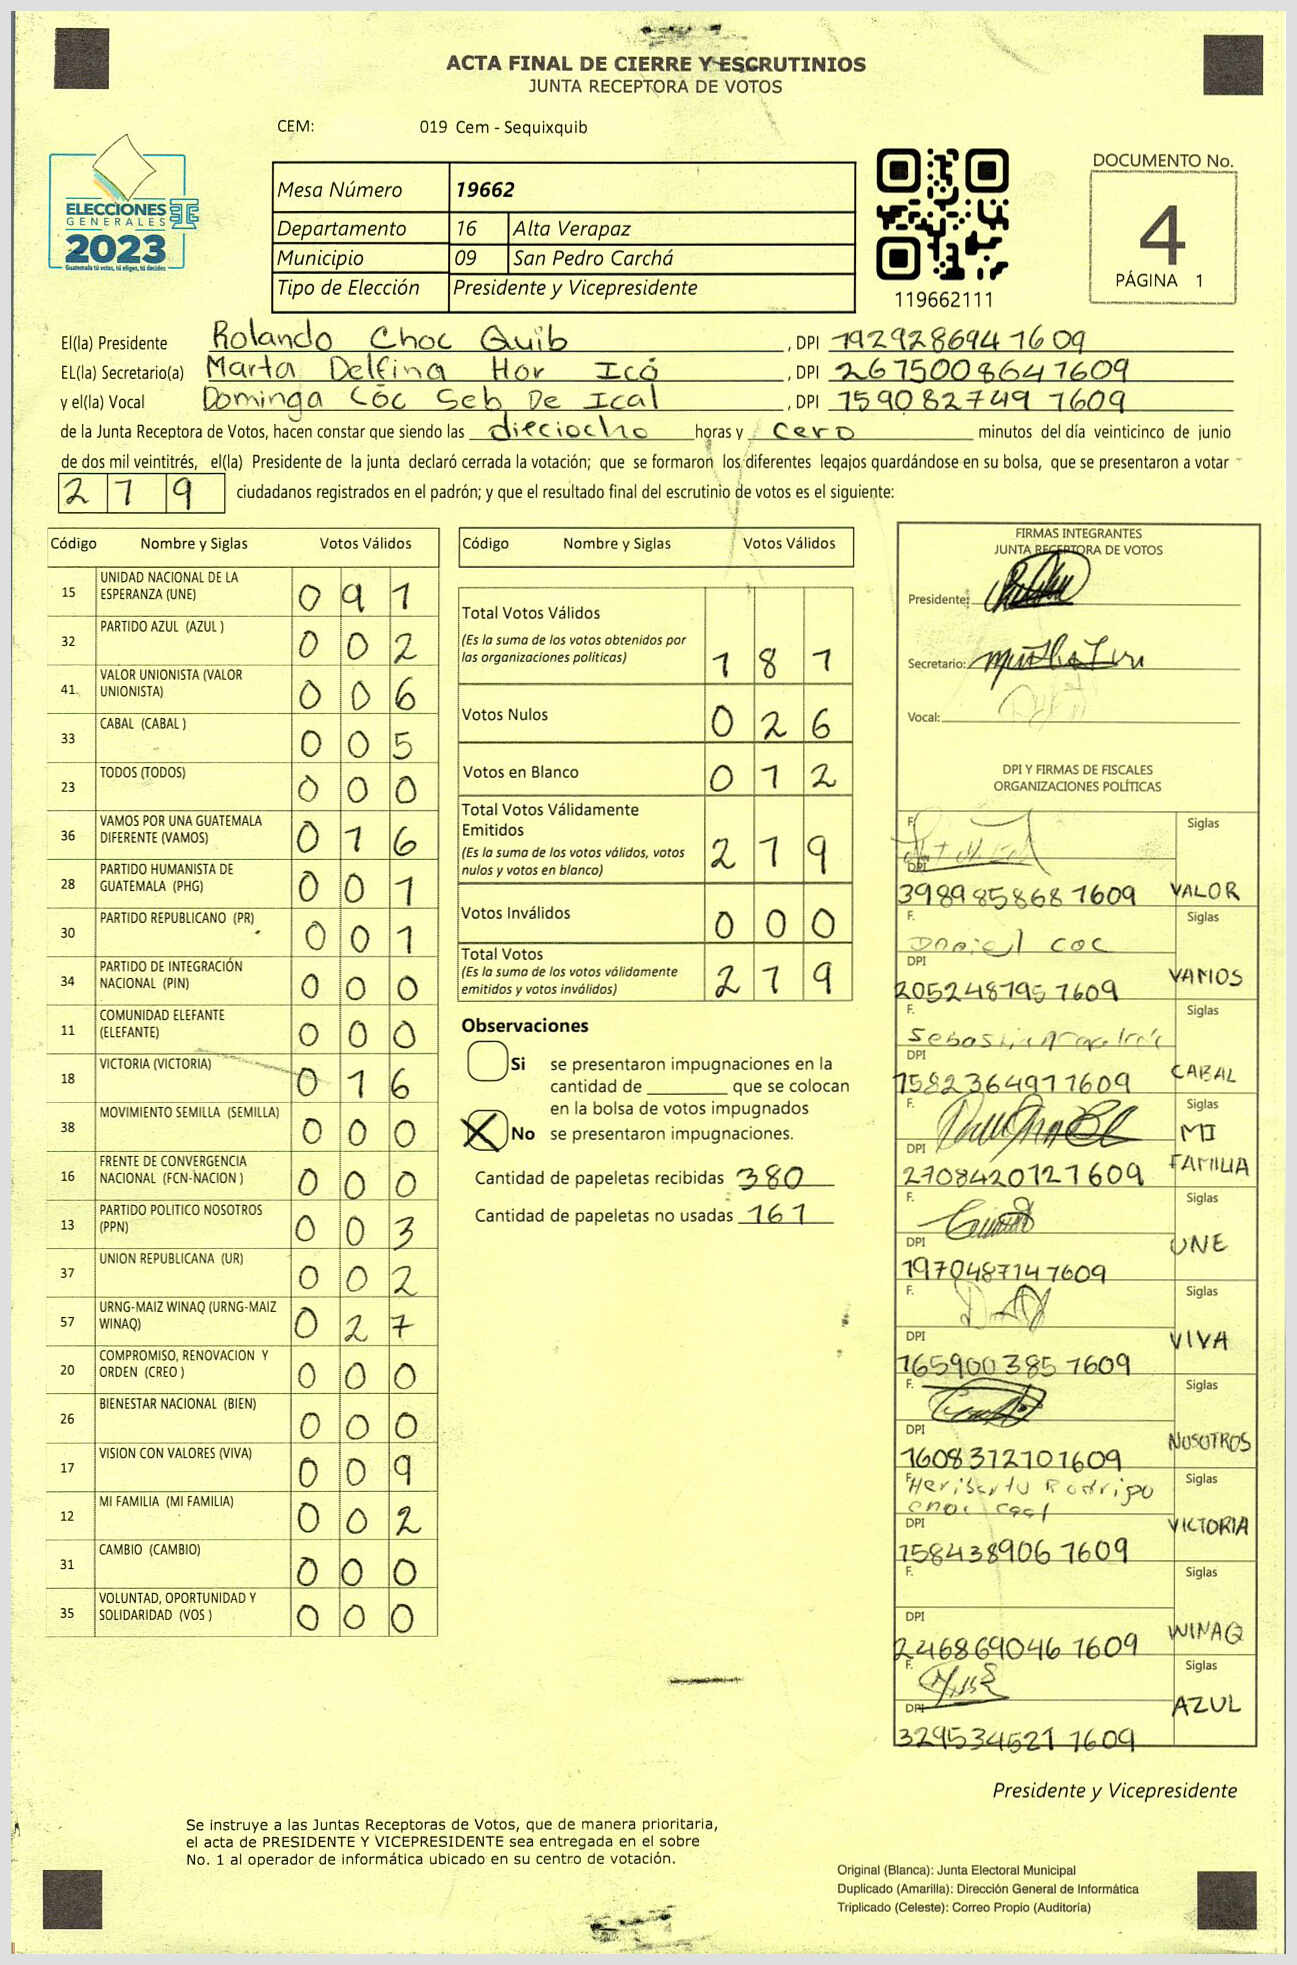 ACTA FINAL DE CIERRE Y ESCRUTINIOS
JUNTA RECEPTORA DE VOTOS
CEM: 019 Cem - Sequixquib
ELECCIONES
GENERALES
2023
Guatemala tú votas, tú eliges, tú decides
Mesa Número 19662
Departamento 16 Alta Verapaz
Municipio 09 San Pedro Carchá
Tipo de Elección Presidente y Vicepresidente
119662111
DOCUMENTO No.
4
PÁGINA 1
El(la) Presidente Rolando Choc Quib , DPI 192928694 1609
EL(la) Secretario(a) Marta Delfina Hor Icó , DPI 267500864 1609
y el(la) Vocal Dominga Cóc Seb De Ical , DPI 159082749 1609
de la Junta Receptora de Votos, hacen constar que siendo las dieciocho horas y cero minutos del día veinticinco de junio
de dos mil veintitrés, el(la) Presidente de la junta declaró cerrada la votación; que se formaron los diferentes legajos guardándose en su bolsa, que se presentaron a votar
2 1 9 ciudadanos registrados en el padrón; y que el resultado final del escrutinio de votos es el siguiente:
Código Nombre y Siglas Votos Válidos
15 UNIDAD NACIONAL DE LA ESPERANZA (UNE) 0 9 1
32 PARTIDO AZUL (AZUL ) 0 0 2
41 VALOR UNIONISTA (VALOR UNIONISTA) 0 0 6
33 CABAL (CABAL ) 0 0 5
23 TODOS (TODOS) 0 0 0
36 VAMOS POR UNA GUATEMALA DIFERENTE (VAMOS) 0 1 6
28 PARTIDO HUMANISTA DE GUATEMALA (PHG) 0 0 1
30 PARTIDO REPUBLICANO (PR) 0 0 1
34 PARTIDO DE INTEGRACIÓN NACIONAL (PIN) 0 0 0
11 COMUNIDAD ELEFANTE (ELEFANTE) 0 0 0
18 VICTORIA (VICTORIA) 0 1 6
38 MOVIMIENTO SEMILLA (SEMILLA) 0 0 0
16 FRENTE DE CONVERGENCIA NACIONAL (FCN-NACION ) 0 0 0
13 PARTIDO POLITICO NOSOTROS (PPN) 0 0 3
37 UNION REPUBLICANA (UR) 0 0 2
57 URNG-MAIZ WINAQ (URNG-MAIZ WINAQ) 0 2 7
20 COMPROMISO, RENOVACION Y ORDEN (CREO ) 0 0 0
26 BIENESTAR NACIONAL (BIEN) 0 0 0
17 VISION CON VALORES (VIVA) 0 0 9
12 MI FAMILIA (MI FAMILIA) 0 0 2
31 CAMBIO (CAMBIO) 0 0 0
35 VOLUNTAD, OPORTUNIDAD Y SOLIDARIDAD (VOS ) 0 0 0
Código Nombre y Siglas Votos Válidos
Total Votos Válidos
(Es la suma de los votos obtenidos por
las organizaciones políticas) 1 8 1
Votos Nulos 0 2 6
Votos en Blanco 0 1 2
Total Votos Válidamente
Emitidos
(Es la suma de los votos válidos, votos
nulos y votos en blanco) 2 1 9
Votos Inválidos 0 0 0
Total Votos
(Es la suma de los votos válidamente
emitidos y votos inválidos) 2 1 9
Observaciones
Si se presentaron impugnaciones en la
cantidad de ________ que se colocan
en la bolsa de votos impugnados
X No se presentaron impugnaciones.
Cantidad de papeletas recibidas 380
Cantidad de papeletas no usadas 161
FIRMAS INTEGRANTES
JUNTA RECEPTORA DE VOTOS
Presidente:
Secretario:
Vocal:
DPI Y FIRMAS DE FISCALES
ORGANIZACIONES POLÍTICAS
F. Siglas
DPI
398985868 1609 VALOR
F. Daniel coc Siglas
DPI
205248195 1609 VAMOS
F. Siglas
DPI
158236491 1609 CABAL
F. Siglas
DPI MI
270842012 1609 FAMILIA
F. Siglas
DPI
197048714 1609 UNE
F. Siglas
DPI
165900385 1609 VIVA
F. Siglas
DPI
160831210 1609 NOSOTROS
F. Heriberto Rodrigo Siglas
choc caal
DPI
158438906 1609 VICTORIA
F. Siglas
DPI
246869046 1609 WINAQ
F. Siglas
DPI
329534521 1609 AZUL
Presidente y Vicepresidente
Se instruye a las Juntas Receptoras de Votos, que de manera prioritaria,
el acta de PRESIDENTE Y VICEPRESIDENTE sea entregada en el sobre
No. 1 al operador de informática ubicado en su centro de votación.
Original (Blanca): Junta Electoral Municipal
Duplicado (Amarilla): Dirección General de Informática
Triplicado (Celeste): Correo Propio (Auditoría)